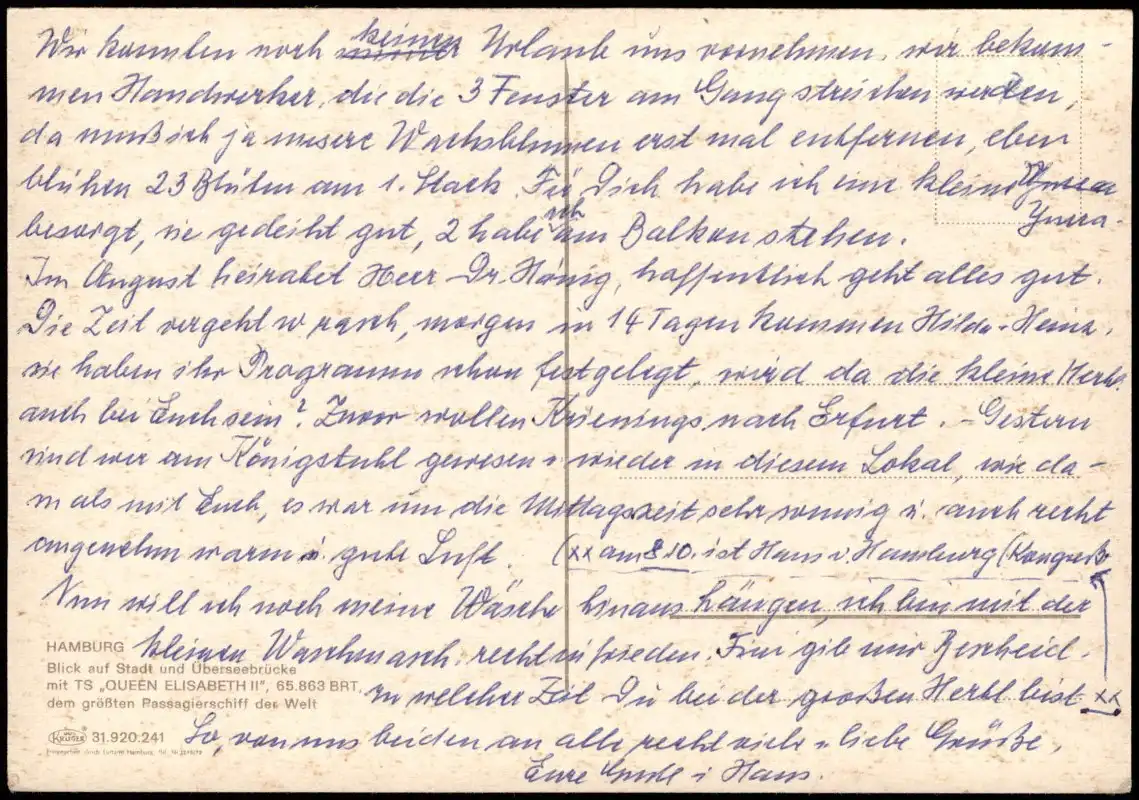 Wir konnten noch keinen Urlaub uns vornehmen, wir bekom-
men Handwerker, die die 3 Fenster am Gang streichen werden,
da muß ich ja unsere Wachsblumen erst mal entfernen, eben
blühen 23 Blüten am 1. Stock. Für Dich habe ich eine kleine
besorgt, sie gedeiht gut, 2 habe ich am Balkon stehen.
Im August heiratet Herr Dr. Hönig, hoffentlich geht alles gut.
Die Zeit vergeht so rasch, morgen in 14 Tagen kommen Hilde-Heinz,
sie haben ihr Programm schon festgelegt, wird da die kleine
auch bei Euch sein? Zuvor wollen Krienings nach Erfurt. – Gestern
sind wir am Königstuhl gewesen u. wieder in diesem Lokal, wie da-
mals mit Euch, es war um die Mittagszeit sehr sonnig u. auch recht
angenehm warm u. gute Luft. (xx am 8.10. ist Hans i. Hamburg (Kongreß
Nun will ich noch meine Wäsche hinaus hängen, ich bin mit der
kleinen Waschmasch. recht zufrieden. gib mir Bescheid,
zu welcher Zeit Du bei der großen Hertl bist. xx
So, von uns beiden an alle recht viele liebe Grüße,
Eure i Hans.
HAMBURG
Blick auf Stadt und Überseebrücke
mit TS „QUEEN ELISABETH II", 65.863 BRT,
dem größten Passagierschiff der Welt
KRÜGER 31.920.241